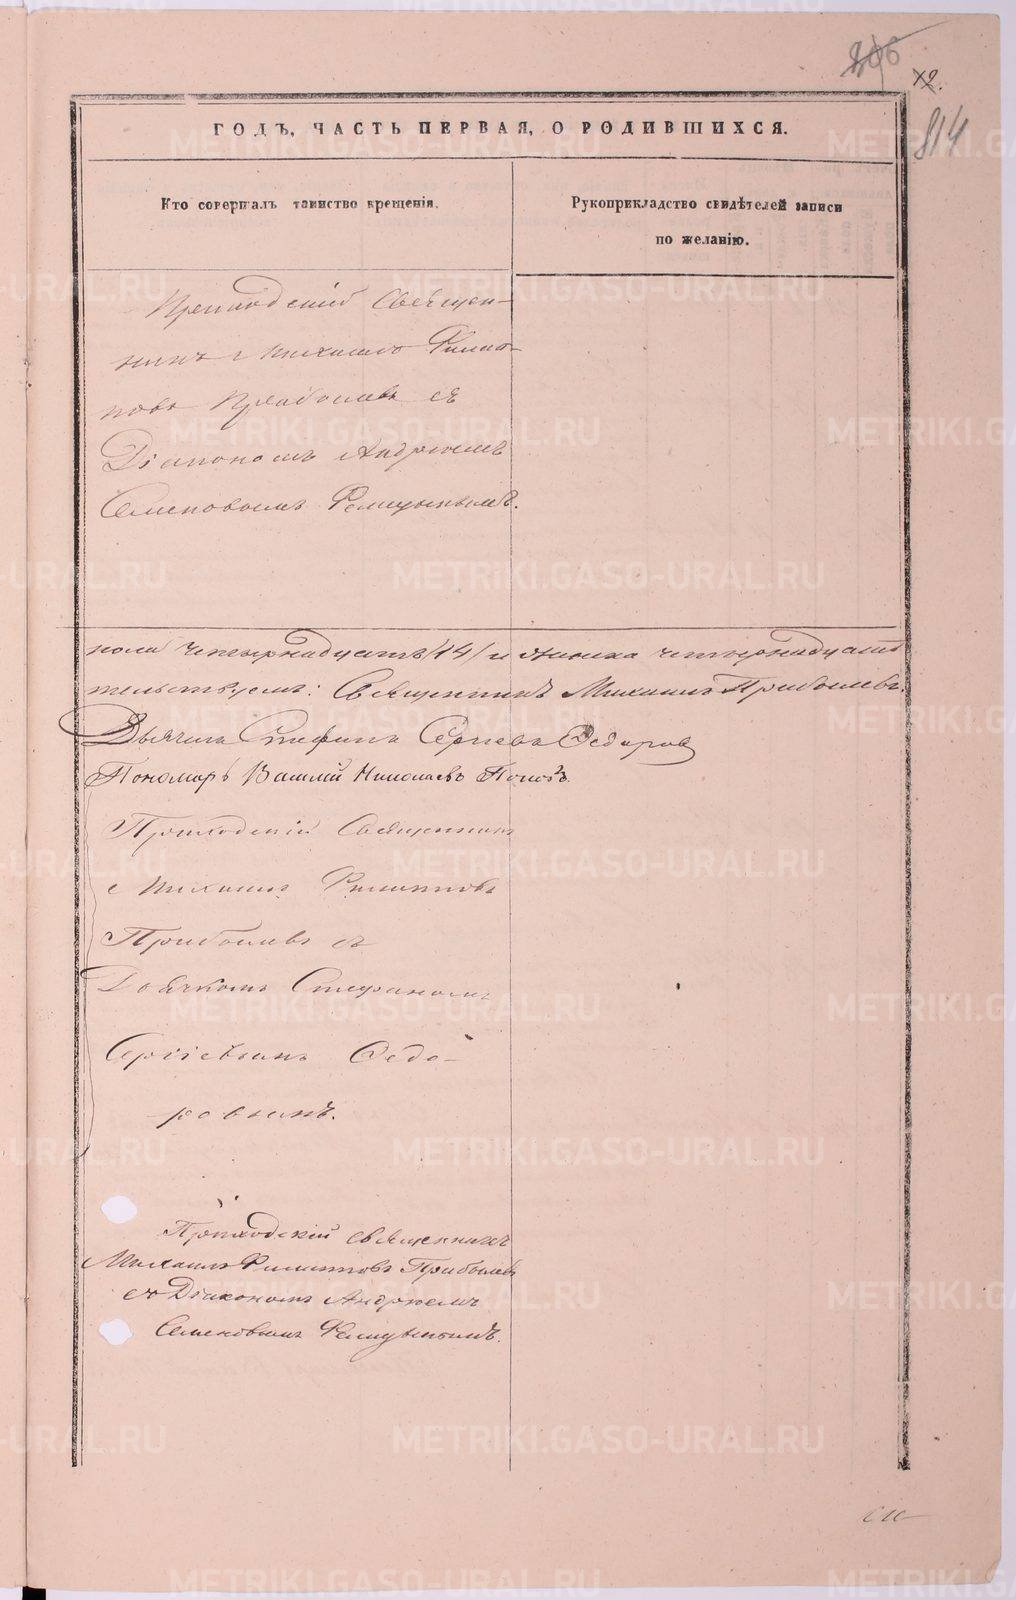 806
12.
814
ГОДЪ, ЧАСТЬ ПЕРВАЯ, О РОДИВШИХСЯ.
Кто совершалъ таинство крещенія.
Рукоприкладство свидѣтелей записи
по желанію.
Приходскій Священ-
никъ Михаилъ Филип-
повъ Прибылевъ съ
Діакономъ Андреемъ
Семеновымъ
пола четырнадцать /14/ и женска четырнадцать
тельствуемъ: Священникъ Михаилъ Прибылевъ.
Дьячекъ Стефанъ Сергіевъ Ѳедоровъ
Пономарь Василій Николаевъ Поповъ.
Приходскій Священникъ
Михаилъ Филипповъ
Прибылевъ съ
Дьячкомъ Стефаномъ
Сергіевымъ Ѳедо-
ровымъ.
Приходскій священникъ
Михаилъ Филипповъ Прибылевъ
съ Діакономъ Андреемъ
Семеновымъ
METRIKI.GASO-URAL.RU